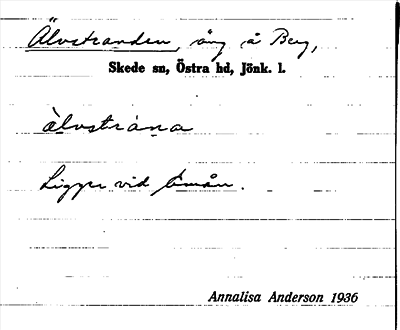 Älvstranden, äng å Berg,
Skede sn, Östra hd, Jönk. l.
älvstrana
Ligger vid Emån.
Annalisa Anderson 1936